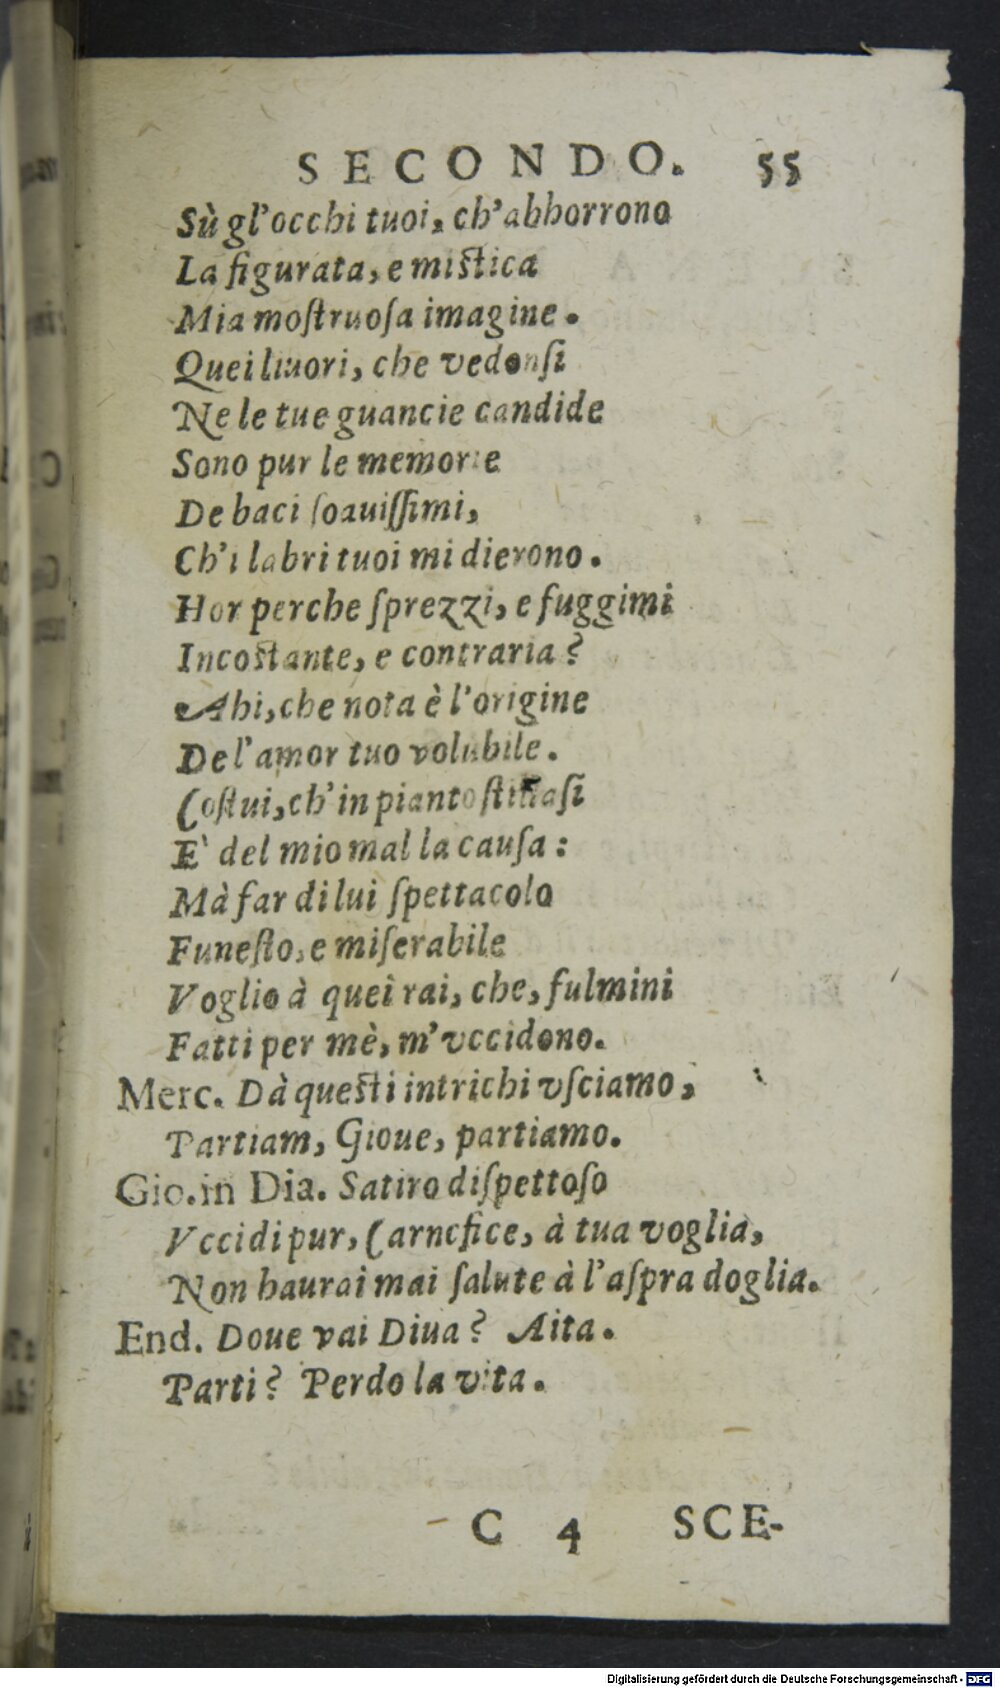 SECONDO. 55
Sù gl'occhi tuoi, ch'abborrono
La figurata, e mistica
Mia mostruosa imagine.
Quei liuori, che vedonsi
Ne le tue guancie candide
Sono pur le memorie
De baci soauissimi,
Ch'i labri tuoi mi dierono.
Hor perche sprezzi, e fuggimi
Incostante, e contraria?
Ahi, che nota è l'origine
De l'amor tuo volubile.
Costui, ch'in pianto stillasi
E' del mio mal la causa:
Mà far di lui spettacolo
Funesto, e miserabile
Voglio à quei rai, che, fulmini
Fatti per mè, m'vccidono.
Merc. Dà questi intrichi vsciamo,
Partiam, Gioue, partiamo.
Gio. in Dia. Satiro dispettoso
Vccidi pur, Carnefice, à tua voglia,
Non haurai mai salute à l'aspra doglia.
End. Doue vai Diua? Aita.
Parti? Perdo la vita.
C 4 SCE-
Digitalisierung gefördert durch die Deutsche Forschungsgemeinschaft - DFG